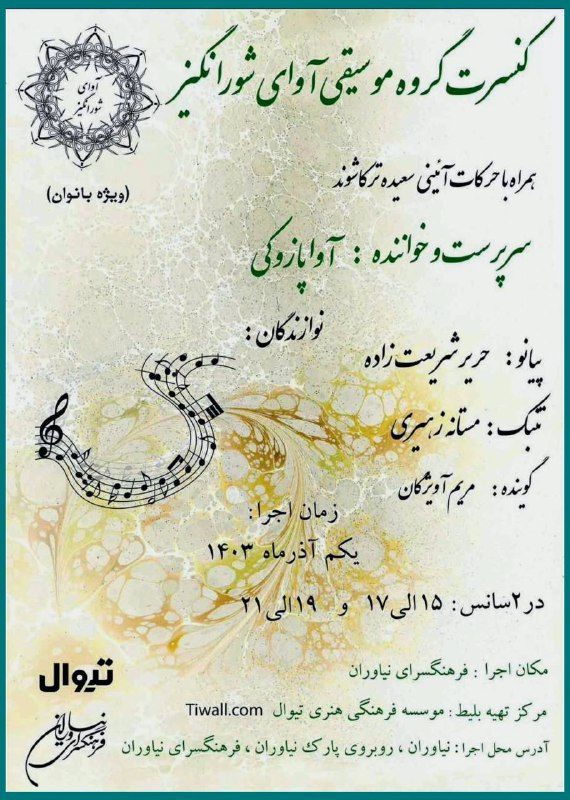 کنسرت گروه موسیقی آوای شورانگیز
آوای
شورانگیز
(ویژه بانوان)
همراه با حرکات آئینی سعیده ترکاشوند
سرپرست و خواننده : آوا پازوکی
نوازندگان :
پیانو : حریر شریعت زاده
تنبک : مستانه زهیری
گوینده : مریم آویژگان
زمان اجرا :
یکم آذرماه ۱۴۰۳
در ۲ سانس : ۱۵ الی ۱۷ و ۱۹ الی ۲۱
مکان اجرا : فرهنگسرای نیاوران
مرکز تهیه بلیط : موسسه فرهنگی هنری تیوال Tiwall.com
آدرس محل اجرا : نیاوران ، روبروی پارک نیاوران ، فرهنگسرای نیاوران
تیوال
فرهنگسرای نیاوران